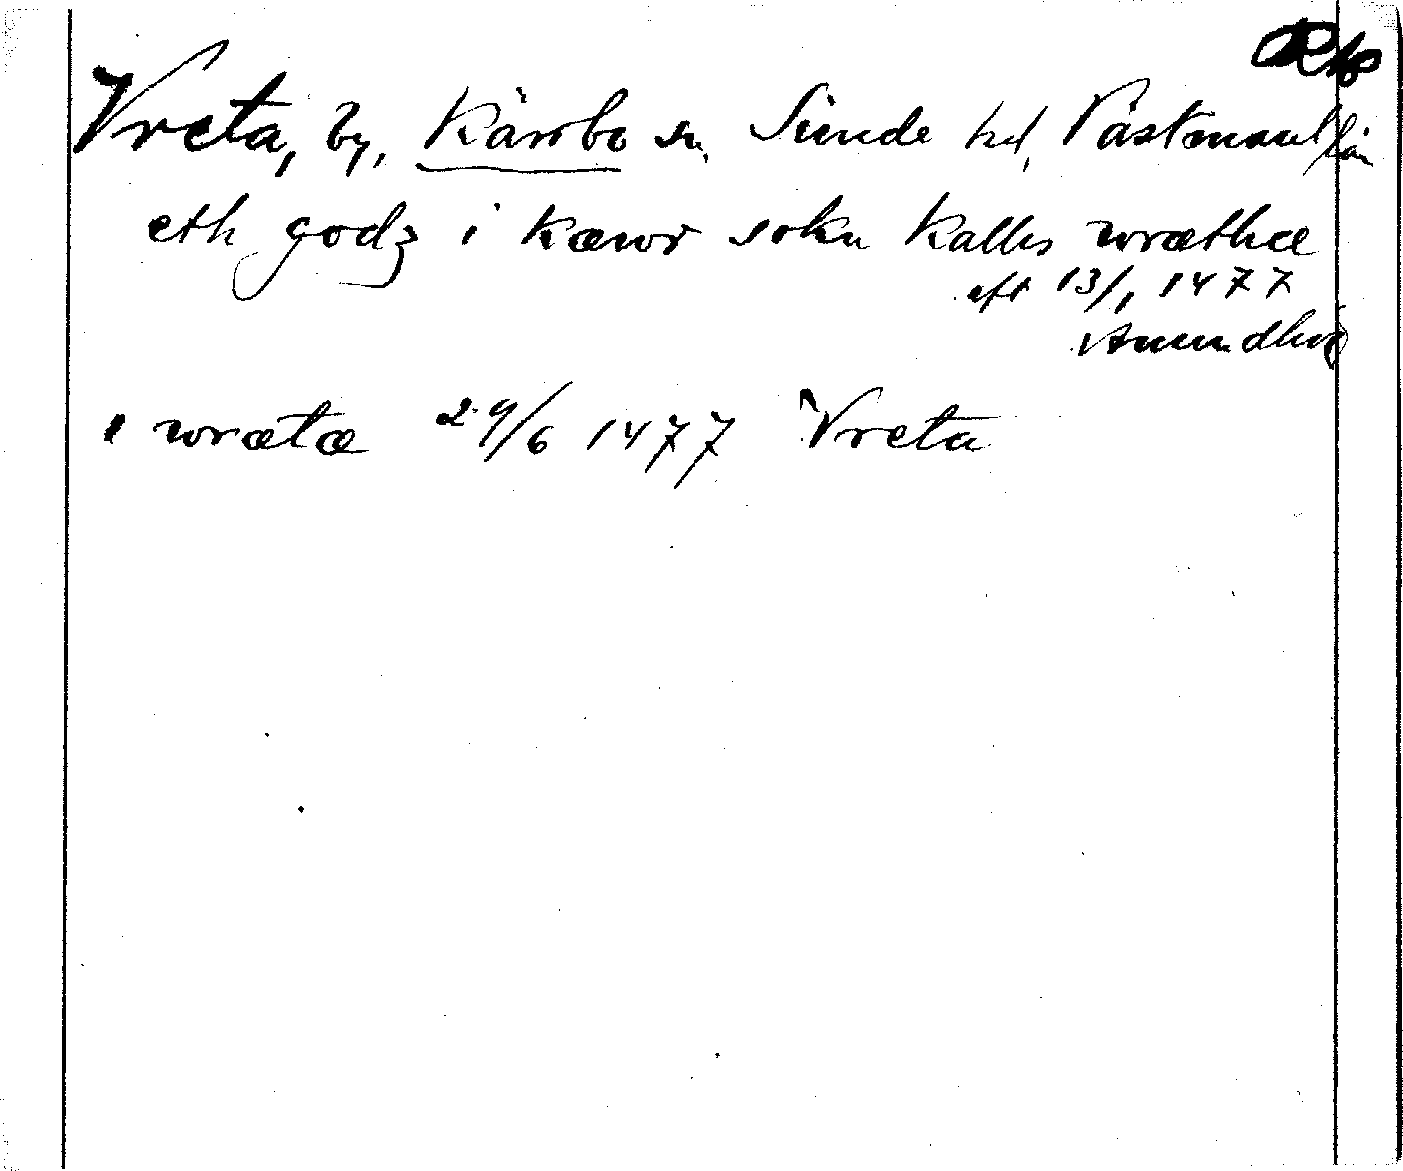 Vreta, by, Kärrbo sn, Siende hd, Västmanl län
eth godz i kærwr sokn kalles wrætha
eft 13/1 1477
i wrætæ 29/6 1477 Vreta